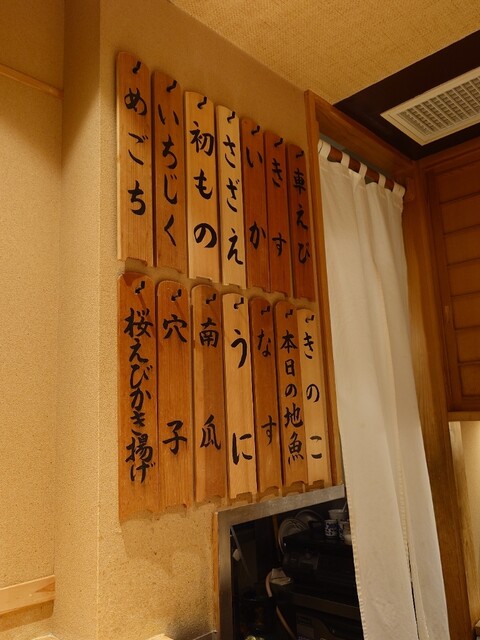 車えび
きす
いか
さざえ
初もの
いちじく
めごち
きのこ
本日の地魚
なす
うに
南瓜
穴子
桜えびかき揚げ